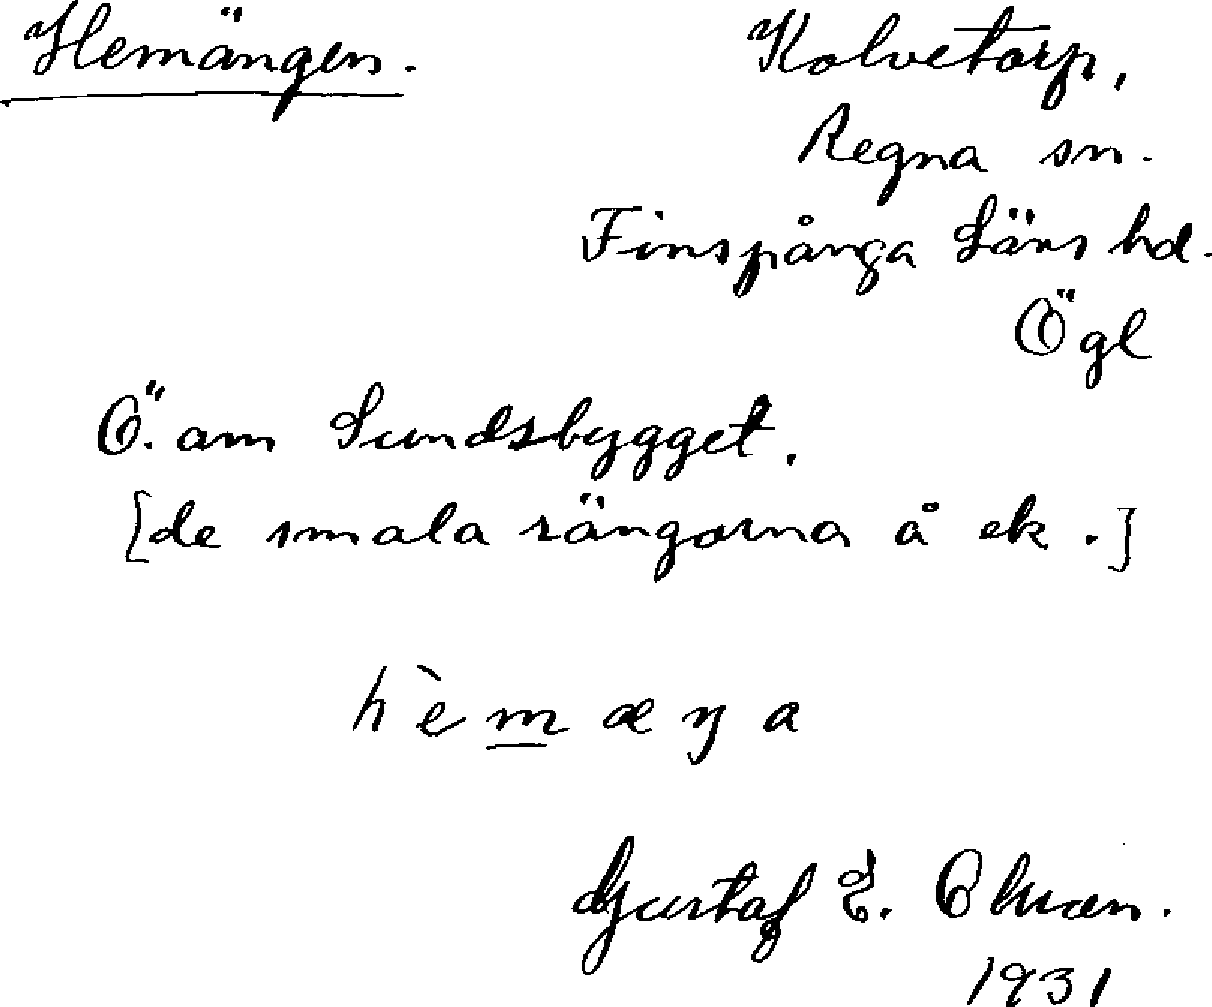 Hemängen.
Kolvetorp,
Regna sn.
Finspånga Läns hd.
Ögl
Ö. om Sundsbygget.
[de smala rängorna å ek.]
h è m æ ŋ a
Gustaf E. Ohman.
1931